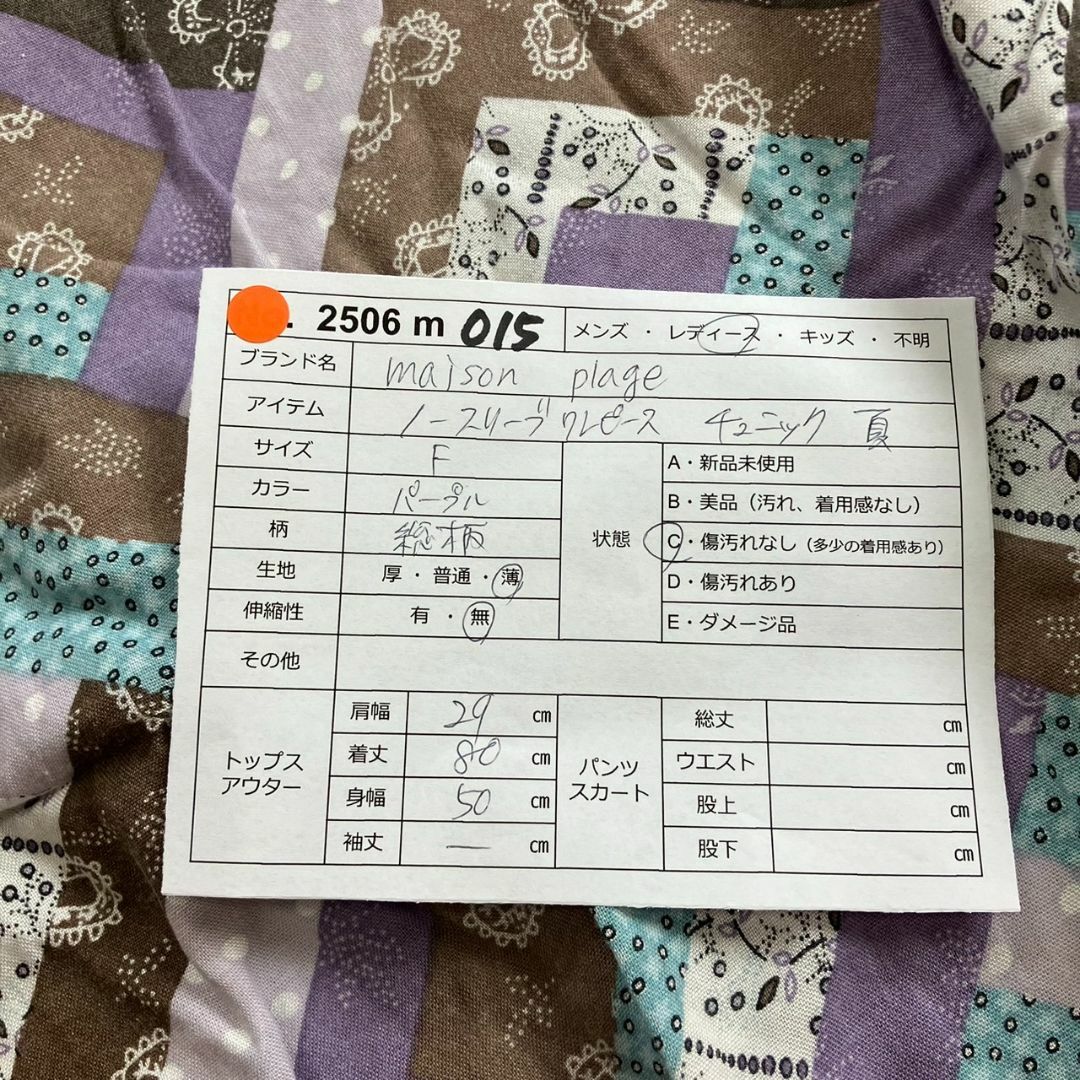 . 2506 m 015 メンズ ・ レディース ・ キッズ ・ 不明
ブランド名 maison plage
アイテム ノースリーブワンピース チュニック 夏
サイズ F
カラー パープル
柄 総柄
生地 厚 ・ 普通 ・ 薄
伸縮性 有 ・ 無
状態
A・新品未使用
B・美品（汚れ、着用感なし）
C・傷汚れなし（多少の着用感あり）
D・傷汚れあり
E・ダメージ品
その他
トップス
アウター
肩幅 29 cm
着丈 80 cm
身幅 50 cm
袖丈 — cm
パンツ
スカート
総丈 cm
ウエスト cm
股上 cm
股下 cm